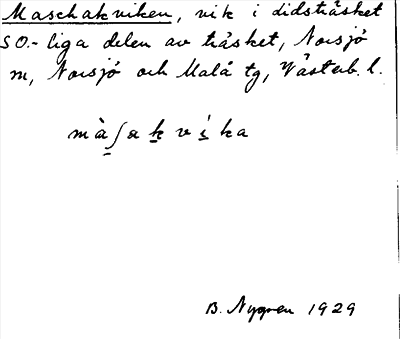 Maschakviken, vik i didsträsket
SO.-liga delen av träsket, Norsjö
m, Norsjö och Malå tg, Västerb. l.
mà̱ʃaḵvís̱ka
B. Nygren 1929